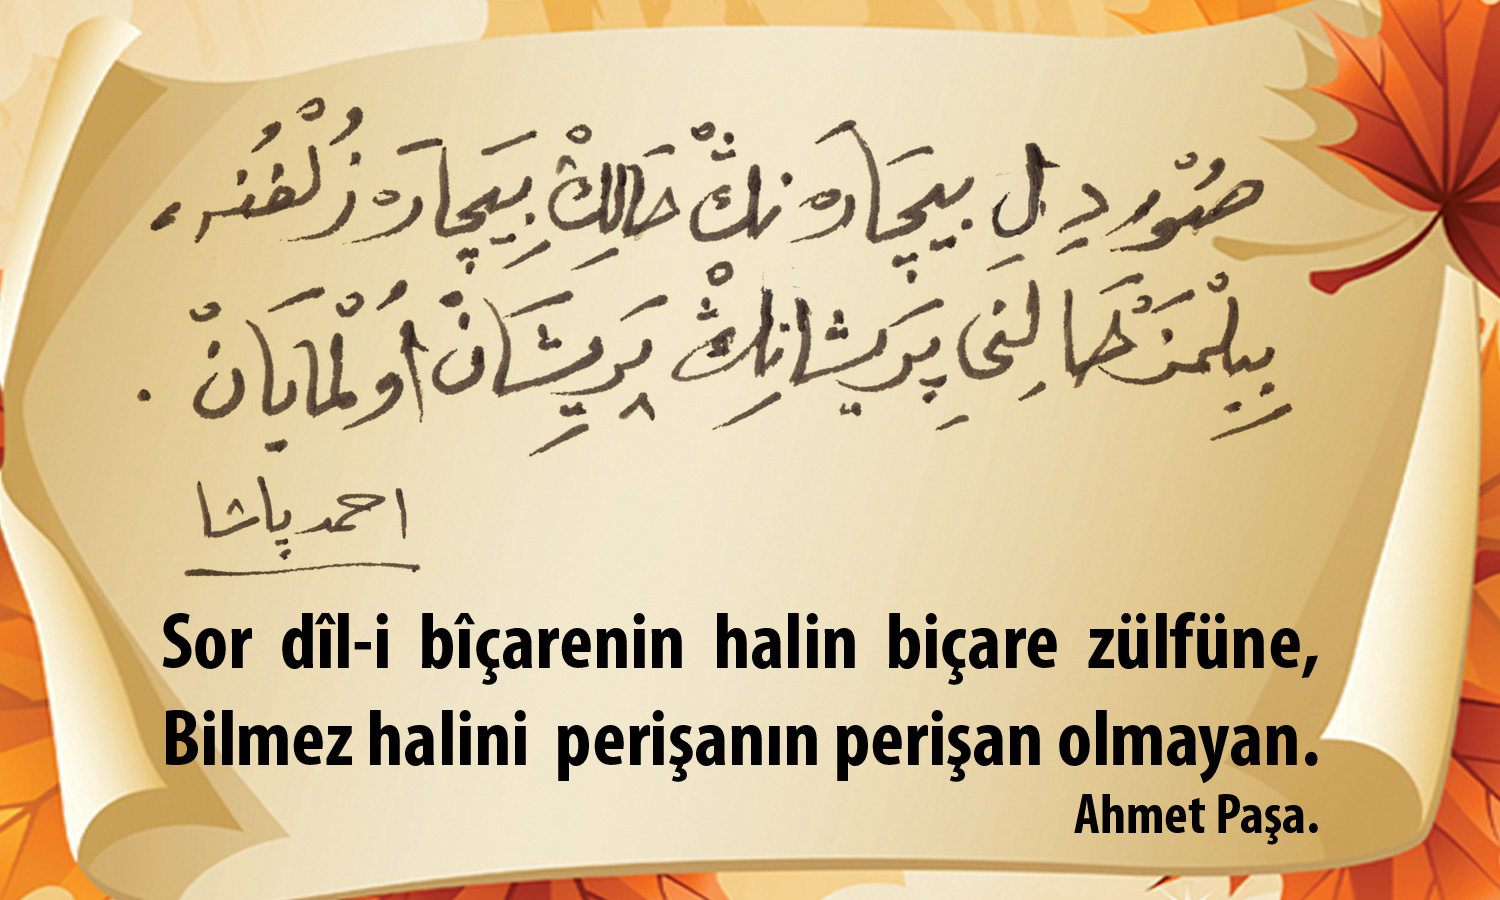 صور دِلِ بیچاره نڭ حالڭ بیچاره زلفنه ،
بیلمز حالنی پریشانڭ پریشان اولمایان .
احمد پاشا
Sor dîl-i bîçarenin halin biçare zülfüne,
Bilmez halini perişanın perişan olmayan.
Ahmet Paşa.